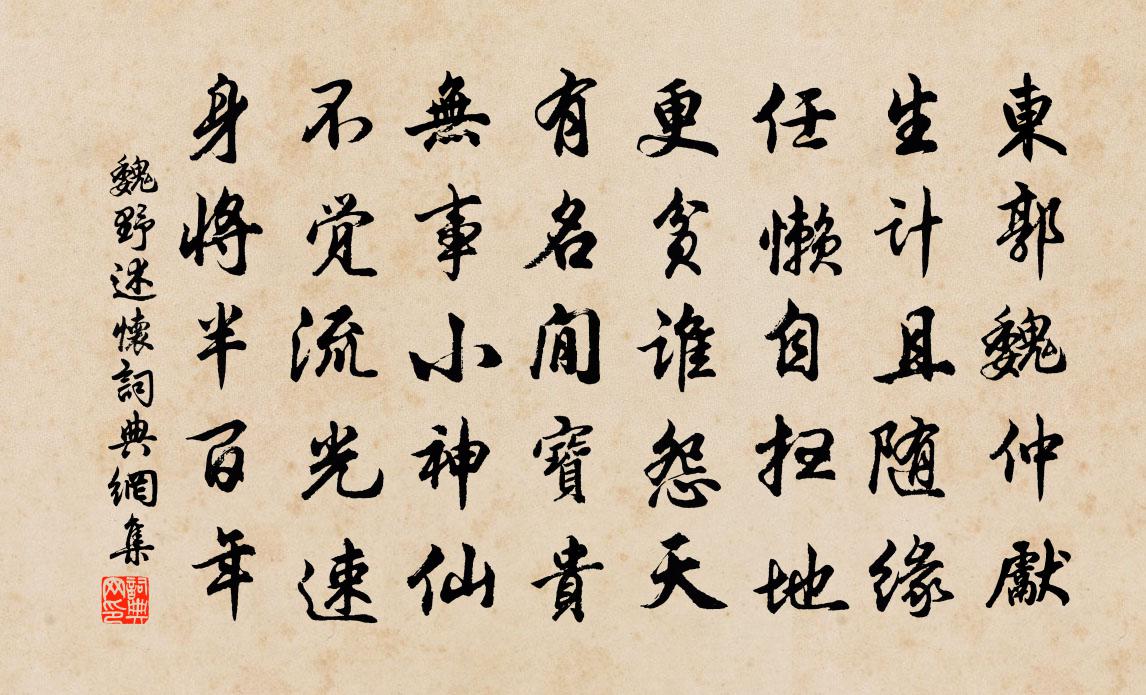 東郭魏仲獻
生计且随缘
任懒自扫地
更貧谁怨天
有名閒寶貴
無事小神仙
不覺流光速
身將半百年
魏野述懷詞典網集
詞典网印